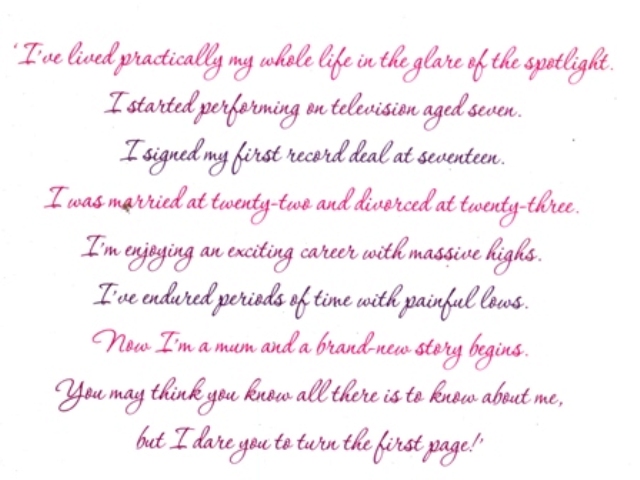 'I've lived practically my whole life in the glare of the spotlight.
I started performing on television aged seven.
I signed my first record deal at seventeen.
I was married at twenty-two and divorced at twenty-three.
I'm enjoying an exciting career with massive highs.
I've endured periods of time with painful lows.
Now I'm a mum and a brand-new story begins.
You may think you know all there is to know about me,
but I dare you to turn the first page!'